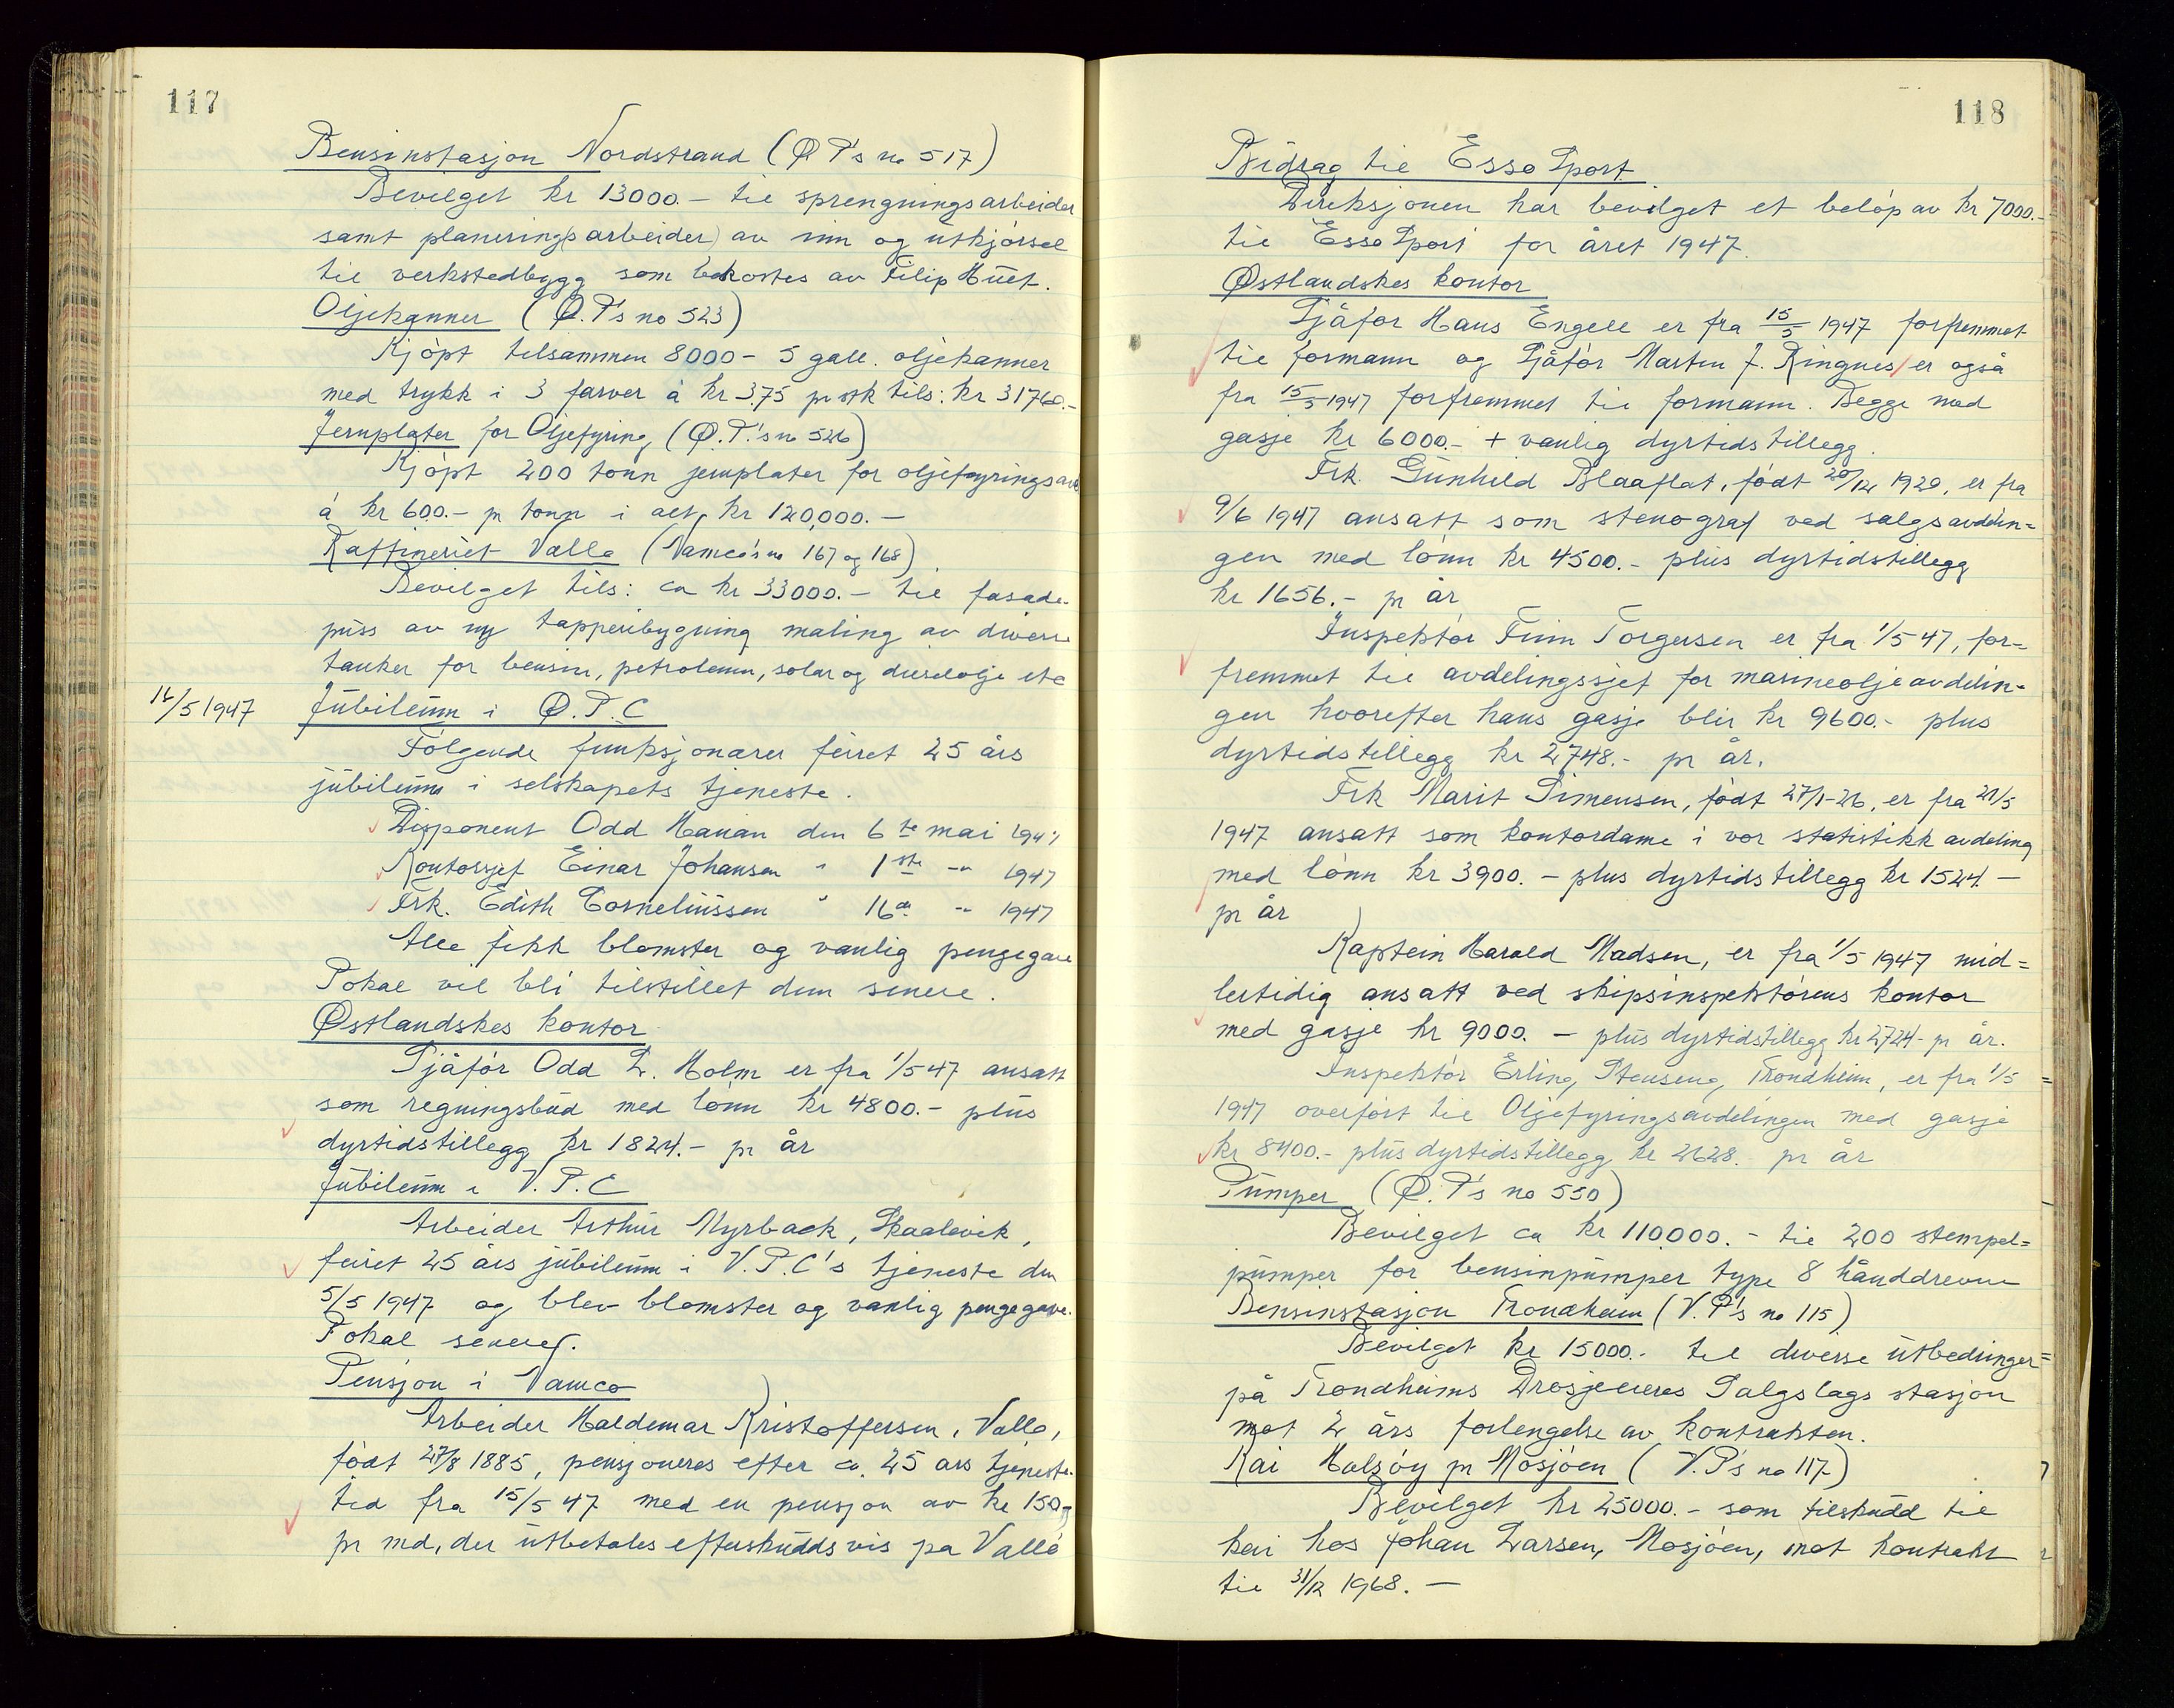 117
Bensinstasjon Nordstrand (Ø P's no 517)
Bevilget kr 13000.- til sprengningsarbeider
samt planering(sarbeider) av inn og utkjörsel
til verkstedbygg som bekostes av Filip Huet.
Oljekanner (Ø.P's no 523)
Kjöpt tilsammen 8000 - 5 gall. oljekanner
med trykk i 3 farver á kr 3.75 pr stk tils: kr 31760.-
Jernplater for Oljefyring, (Ø.P.'s no 526)
Kjöpt 200 tonn jernplater for oljefyringsavd
á kr 600.- pr tonn i alt, kr 120,000.-
Raffineriet Vallö (Vamco's no 167 og 168)
Bevilget tils: ca kr 33000.- til fasade-
puss av ny tapperibygning maling av diverse
tanker for bensin, petroleum, solar og dieselolje etc
16/5 1947 Jubileum i Ø.P.C
Fölgende funksjonærer feiret 25 års
jubileum i selskapets tjeneste.
Disponent Odd Hanan den 6te mai 1947
Kontorsjef Einar Johansen " 1ste -"- 1947
Frk. Edith Corneliussen " 16de -"- 1947
Alle fikk blomster og vanlig pengegave
Pokal vil bli tilstillet dem senere.
Østlandskes kontor
Sjåför Odd L. Holm er fra 1/5 47 ansatt
som regningsbud med lönn kr 4800.- plus
dyrtidstillegg kr 1824.- pr år
Jubileum i V.P.C
Arbeider Arthur Myrback, Skaalevik,
feiret 25 års jubileum i V.P.C's tjeneste den
5/5 1947 og blev blomster og vanlig pengegave.
Pokal senere.
Pensjon i Vamco
Arbeider Haldemar Kristoffersen, Vallö,
födt 27/8 1885, pensjoneres efter ca. 25 års tjeneste-
tid fra 15/5 47 med en pensjon av kr 150.-
pr md, der utbetales efterskuddsvis på Vallö
118
Bidrag til Esso Sport
Direksjonen har bevilget et belöp av kr 7000.-
til Esso Sport for året 1947.
Østlandskes kontor
Sjåför Hans Engell er fra 15/5 1947 forfremmet
til formann og Sjåför Martin J. Ringnes er også
fra 15/5 1947 forfremmet til formann. Begge med
gasje kr 6000.- + vanlig dyrtidstillegg.
Frk. Gunhild Blaaflat, födt 20/12 1920, er fra
9/6 1947 ansatt som stenograf ved salgsavdelin=
gen med lönn kr 4500.- plus dyrtidstillegg
kr 1656.- pr år
Inspektör Finn Torgersen er fra 1/5 47, for=
fremmet til avdelingssjef for marineoljeavdelin-
gen hvorefter hans gasje blir kr 9600.- plus
dyrtidstillegg kr 2748.- pr år.
Frk Marit Simensen, födt 27/1-26, er fra 21/5
1947 ansatt som kontordame i vor statistikk avdeling
med lönn kr 3900.- plus dyrtidstillegg kr 1524.-
pr år
Kaptein Harald Madsen, er fra 1/5 1947 mid=
lertidig ansatt ved skipsinspektörens kontor
med gasje kr 9000.- plus dyrtidstillegg kr 2724- pr år.
Inspektör Erling Stenseng, Trondheim, er fra 1/5
1947 overfört til Oljefyringsavdelingen med gasje
kr 8400.- plus dyrtidstillegg kr 2628. pr år
Pumper (Ø.P's no 550)
Bevilget ca kr 110.000.- til 200 stempel=
pumper for bensinpumper type 8 hånddrevne
Bensinstasjon Trondheim (V.P's no 115)
Bevilget kr 15000.- til diverse utbedringer
på Trondheims Drosjeeieres Salgslags stasjon
mot 2 års forlengelse av kontrakten.
Kai Halsöy pr Mosjöen (V.P's no 117)
Bevilget kr 25000.- som tilskudd til
kai hos Johan Larsen, Mosjöen, mot kontrakt
til 31/12 1968.-